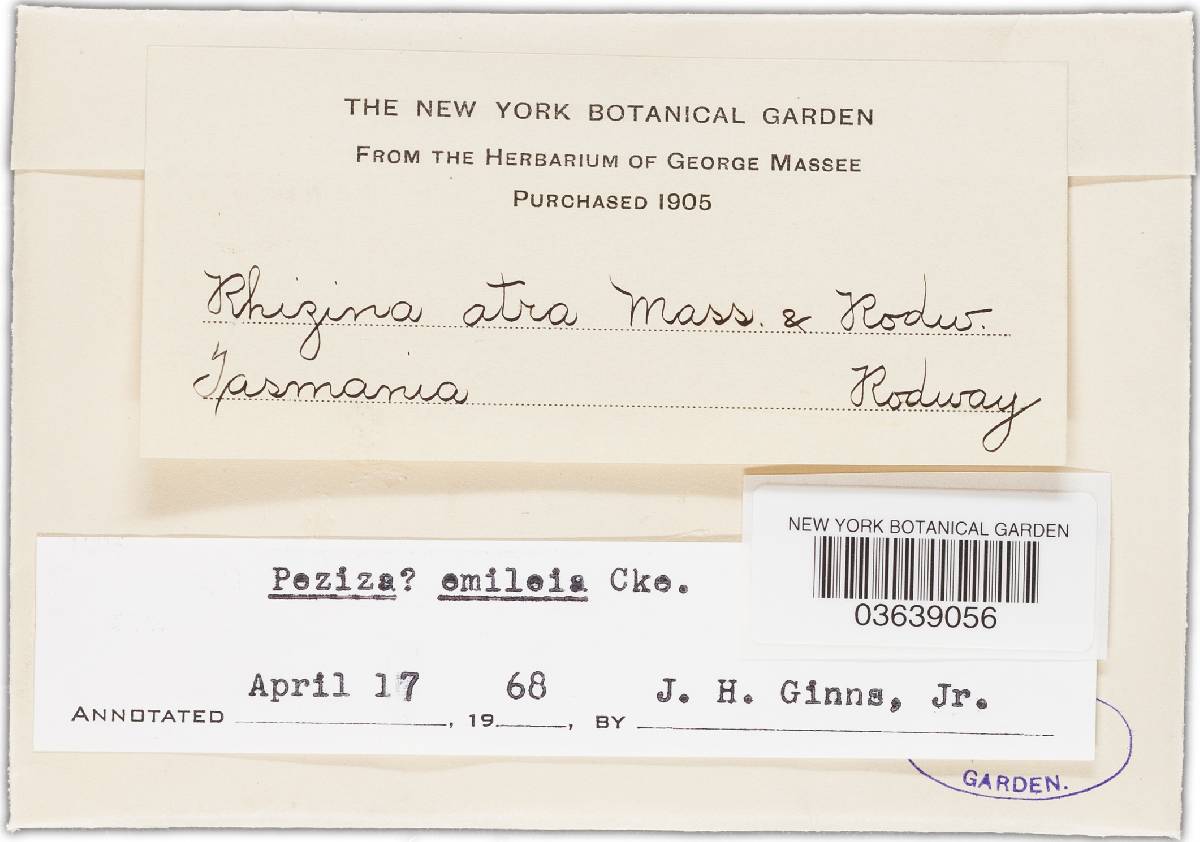 THE NEW YORK BOTANICAL GARDEN
FROM THE HERBARIUM OF GEORGE MASSEE
PURCHASED 1905
Rhizina atra Mass. & Rodw.
Tasmania Rodway
NEW YORK BOTANICAL GARDEN
03639056
Peziza? emileia Cke.
April 17 68 J. H. Ginns, Jr.
ANNOTATED , 19 , BY
GARDEN.